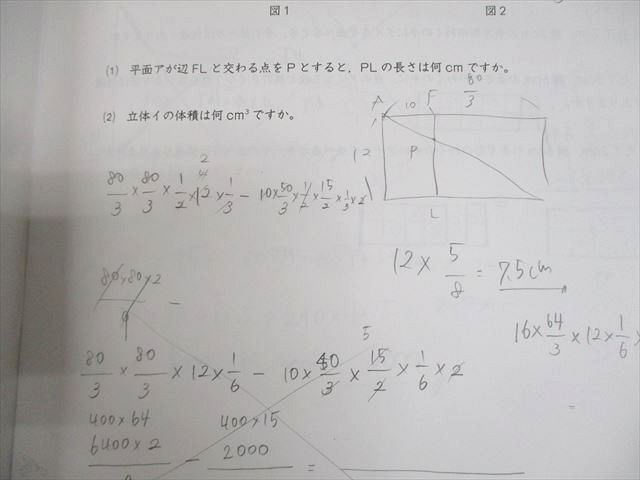 図1
図2
(1) 平面アが辺FLと交わる点をPとすると，PLの長さは何cmですか。
(2) 立体イの体積は何cm³ですか。
A 10 F 80/3
12 P
L
80/3 × 80/3 × 1/2 × 12 × 1/3 − 10 × 50/3 × 1/2 × 15/2 × 1/3 × 2
12 × 5/8 = 7.5cm
80×80×2 −
16 × 64/3 × 12 × 1/6 ×
80/3 × 80/3 × 12 × 1/6 − 10 × 40/3 × 15/2 × 1/6 × 2
5
400×64 400×15
6400×2 − 2000 =